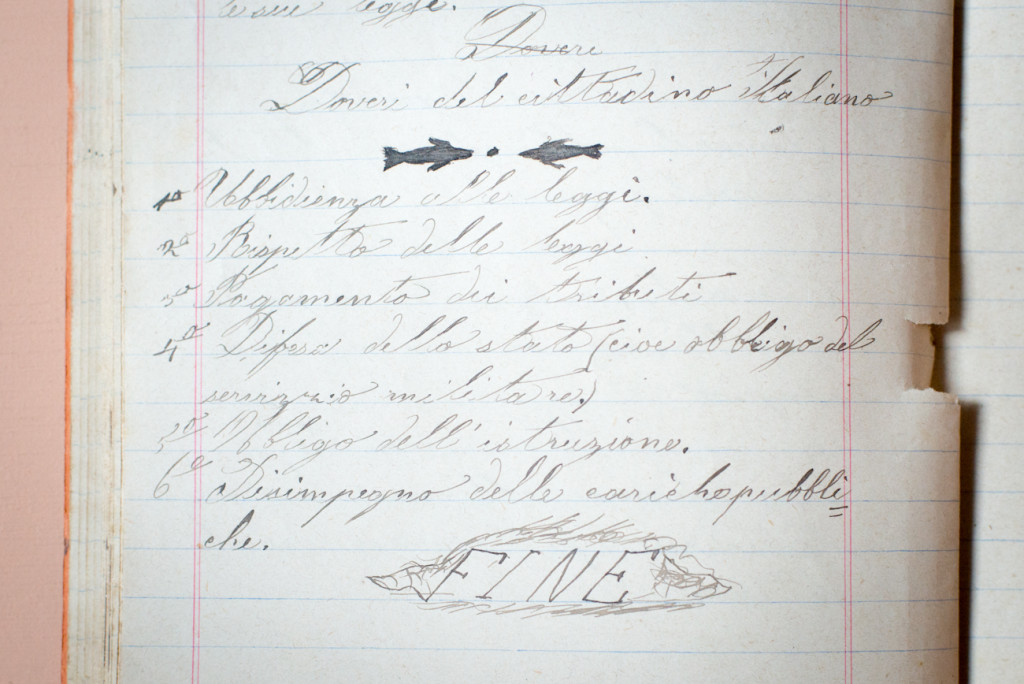 le sue leggi.
Doveri
Doveri del cittadino Italiano
1º Ubbidienza alle leggi.
2º Rispetto delle leggi
3º Pagamento dei tributi
4º Difesa dello stato (cioe obbligo del
servizzio militare.)
5º Obbligo dell'istruzione.
6º Disimpegno delle cariche pubbli
che.
FINE